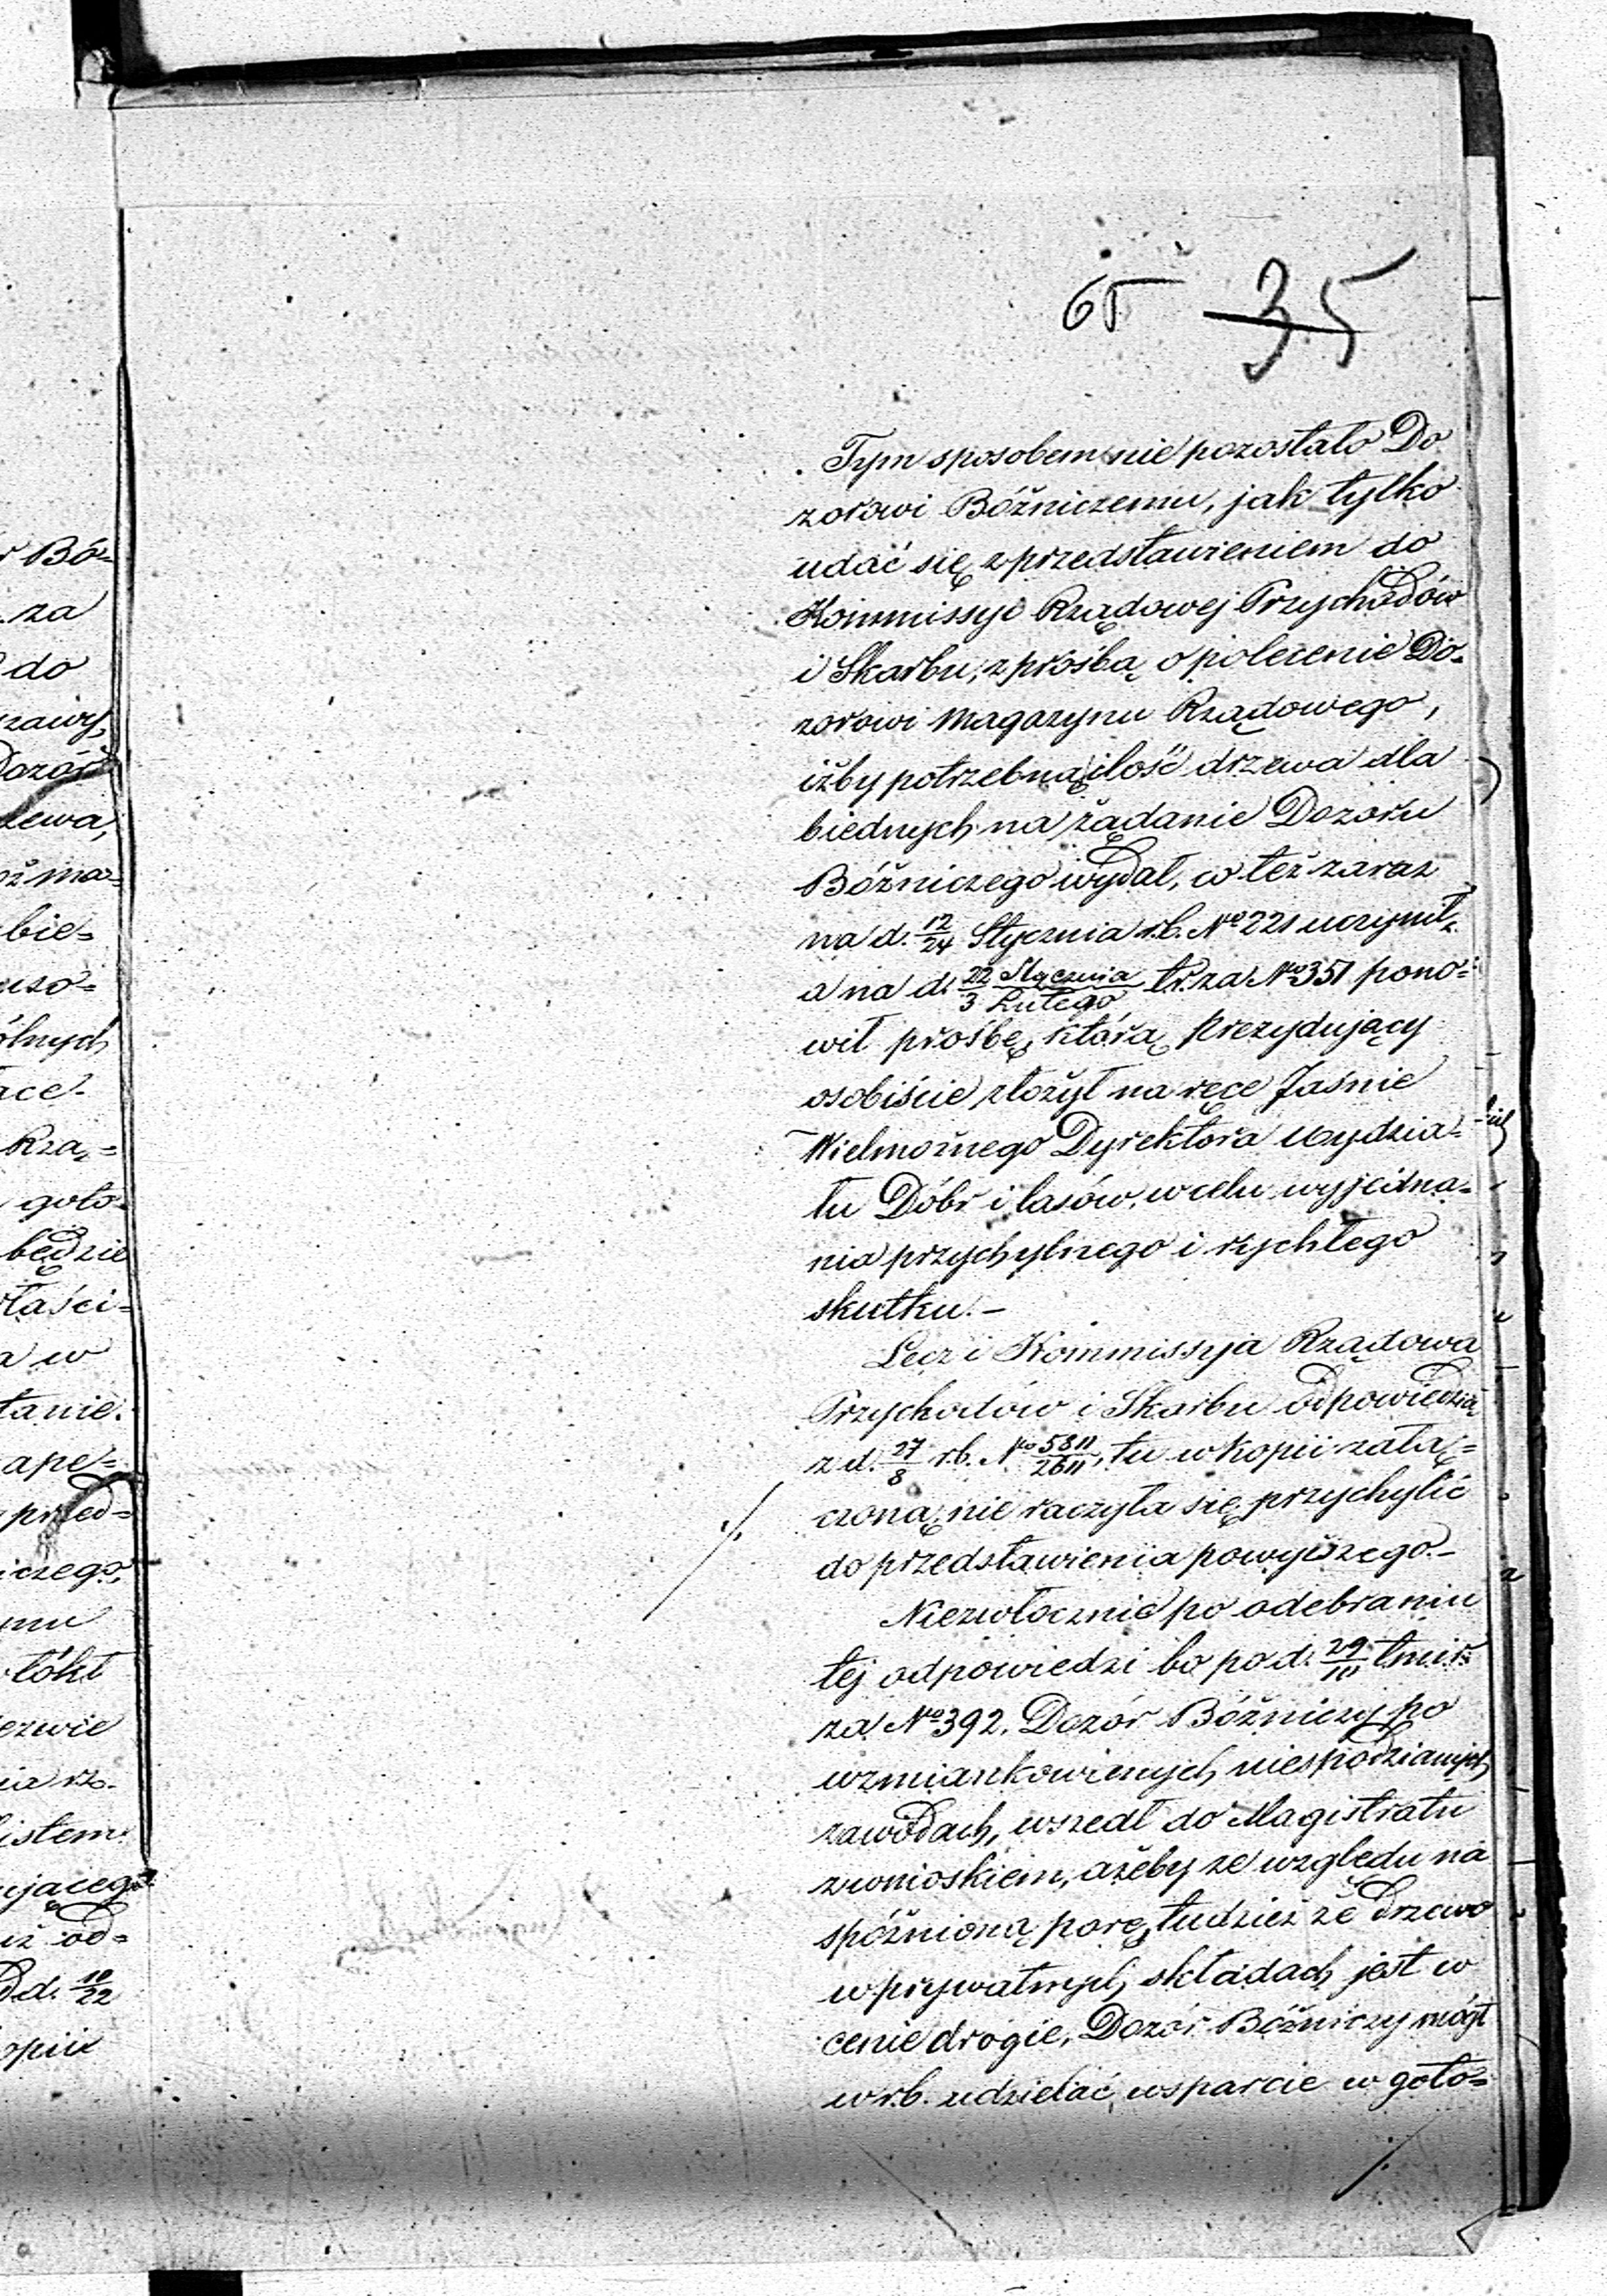 65 35
Tym sposobem nie pozostało Do
zorowi Bóżniczemu, jak tylko
udać się z przedstawieniem do
Kommissyi Rządowej Przychodów
i Skarbu, z prośbą o polecenie Do=
zorowi Magazynu Rządowego,
iżby potrzebną ilość drzewa dla
biednych na żądanie Dozoru
Bóżniczego wydał, co też zaraz
na d. 12/24 Stycznia r.b. No 221 uczynił,
a na d. 22 Stycznia/3 Lutego t.r. za No 351 pono=
wił prośbę, którą Prezydujący
osobiście złożył na ręce Jaśnie
Wielmożnego Dyrektora Wydzia=
łu Dóbr i lasów, w celu wyjedna=
nia przychylnego i rychłego
skutku.–
Lecz i Kommissyja Rządowa
Przychodów i Skarbu odpowiedzią
z d. 27/8 r.b. No 5811/2611, tu w kopii załą=
czoną, nie raczyła się przychylić
do przedstawienia powyższego.–
Niezwłocznie po odebraniu
tej odpowiedzi bo pod d. 29/10 t.m.i r.
za No 392, Dozór Bóżniczy po
wzmiankowanych niespodzianych
zawodach, wszedł do Magistratu
z wnioskiem, ażeby ze względu na
spóźnioną porę, tudzież że drzewo
w prywatnych składach jest w
cenie drogie, Dozór Bóżniczy mógł
w r.b. udzielać wsparcie w goto=
r Bó=
za
do
Dozór
bie=
ólnych
Rzą=
goto=
będzie
łaści=
a w
tanie.
ape=
przed=
iczego,
istem
ującego
iż od=
d. 10/22
opii